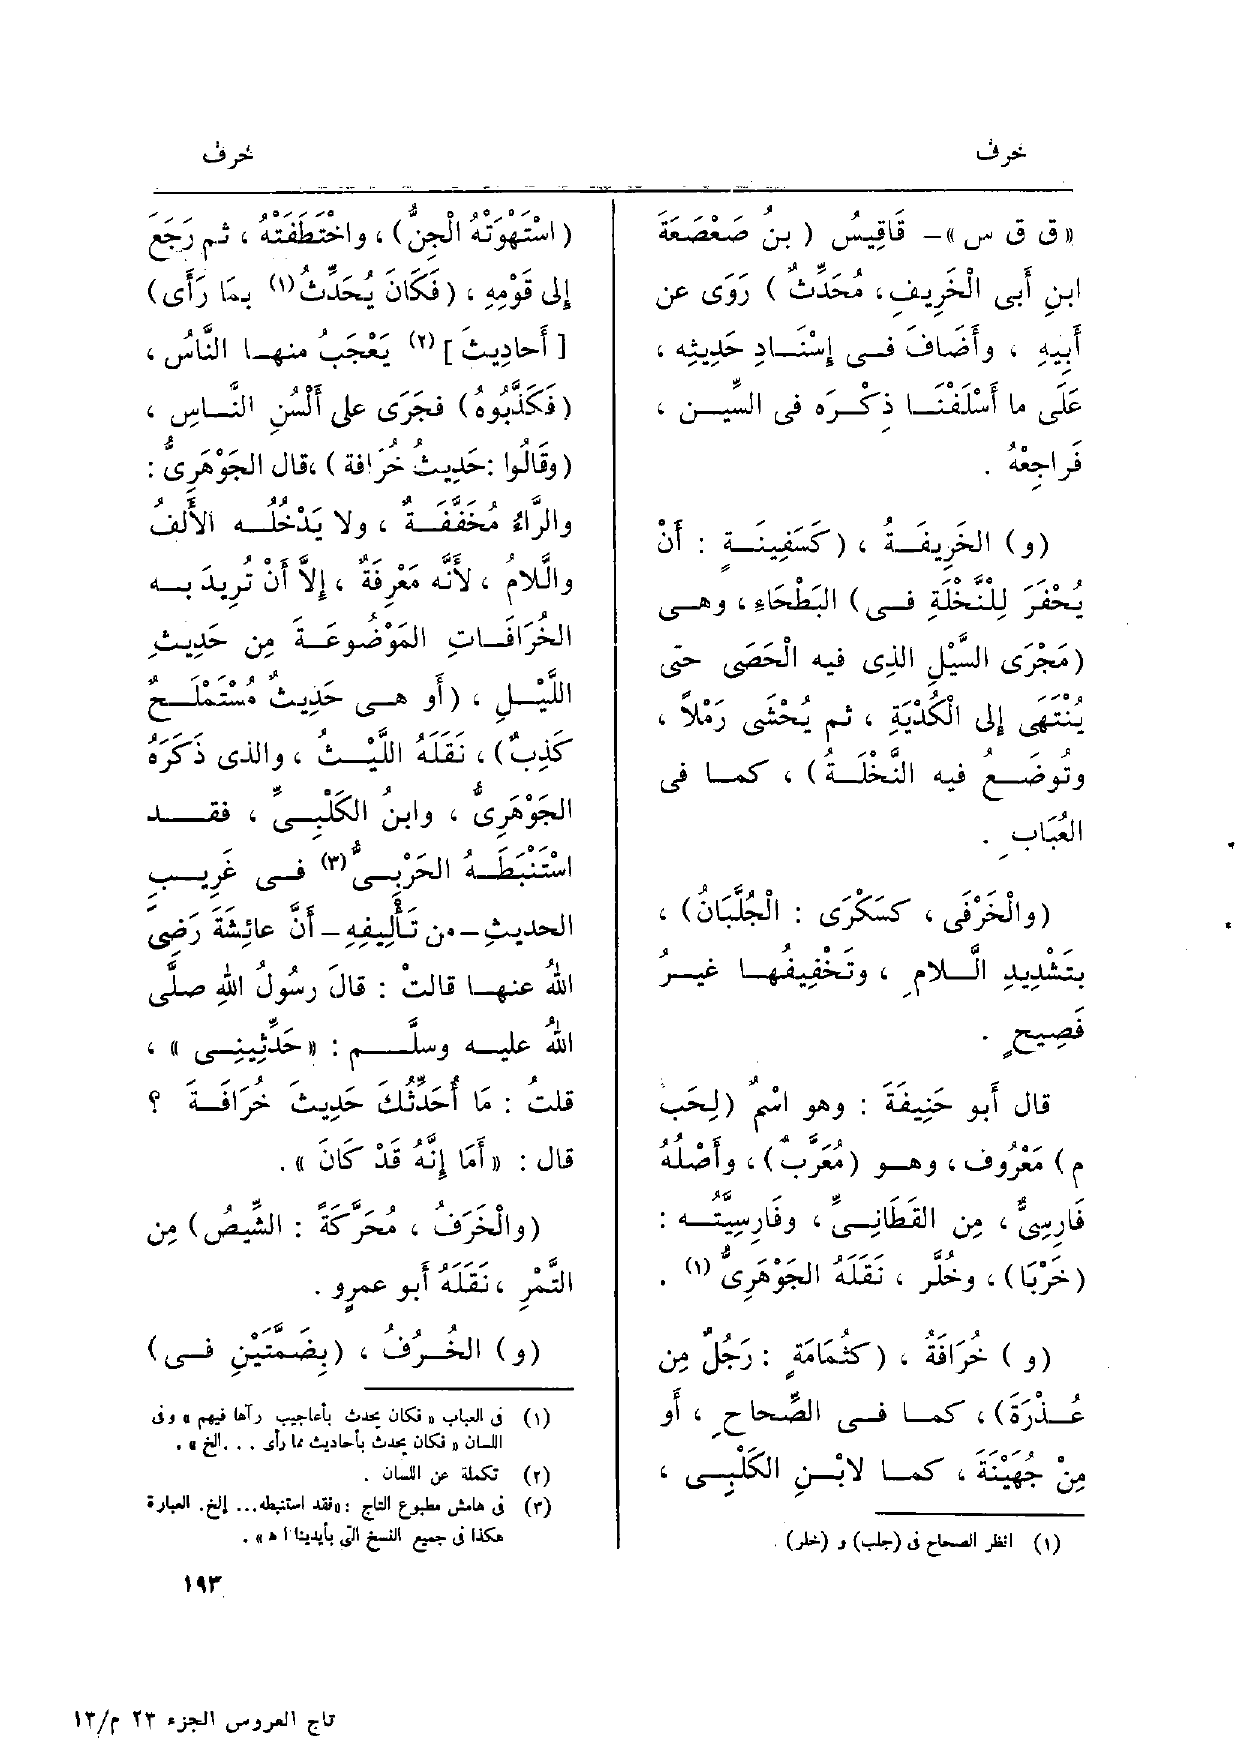 خرف
خرف
«ق ق س» – قَاقِيسُ (بنُ صَعْصَعَةَ
ابنِ أَبى الْخَرِيفِ، مُحَدِّثٌ) رَوَى عن
أَبِيهِ ، وأَضَافَ فى إِسْنَادِ حَدِيثِه ،
عَلَى ما أَسْلَفْنَا ذِكْرَه فى السِّين ،
فَراجِعْهُ .
(و) الخَرِيفَةُ ، (كسَفِينَةٍ : أَنْ
يُحْفَرَ لِلنَّخْلَةِ فى) البَطْحَاءِ، وهى
(مَجْرَى السَّيْلِ الذى فيه الْحَصَى حتى
يُنْتَهَى إِلى الْكُدْيَةِ ، ثم يُحْشَى رَمْلاً ،
وتُوضَعُ فيه النَّخْلَةُ) ، كما فى
العُبَابِ .
(والْخَرْفَى ، كسَكْرَى : الْجُلَّبَانُ) ،
بتَشْدِيدِ الَّلامِ ، وتَخْفِيفُها غيرُ
فَصِيحٍ .
قال أَبو حَنِيفَةَ : وهو اسْمٌ (لِحَب
م) مَعْرُوف، وهو (مُعَرَّبٌ)، وأَصْلُهُ
فَارِسِىٌّ ، مِن القَطَانِىِّ ، وفَارِسِيَّتُه :
(خَرْبَا)، وخُلَّر ، نَقَلَهُ الجَوْهَرِىُّ (١) .
(و) خُرَافَةُ ، (كثُمَامَةٍ : رَجُلٌ مِن
عُذْرَةَ)، كما فى الصِّحاحِ ، أَو
مِنْ جُهَيْنَةَ ، كما لابْنِ الكَلْبِى ،
(١) انظر الصحاح فى (جلب) و (خلر) .
(اسْتَهْوَتْهُ الْجِنُّ) ، واخْتَطَفَتْهُ ، ثم رَجَعَ
إِلى قَوْمِهِ ، (فَكَانَ يُحَدِّثُ(١) بِمَا رَأَى)
[أَحادِيثَ] (٢) يَعْجَبُ منها النَّاسُ ،
(فكَذَّبُوهُ) فجَرَى على أَلْسُنِ النَّاسِ ،
(وقَالُوا : حَدِيثُ خُرَافة) ،قال الجَوْهَرِىُّ :
والرَّاءُ مُخَفَّفَةٌ ، ولا يَدْخُلُه الأَلِفُ
والَّلامُ ، لأَنَّه مَعْرِفَةٌ ، إِلاَّ أَنْ تُرِيدَ به
الخُرَافَاتِ المَوْضُوعَةَ مِن حَدِيثِ
اللَّيْلِ ، (أَو هى حَدِيثٌ مُسْتَمْلَحٌ
كَذِبٌ) ، نَقَلَهُ اللَّيْثُ ، والذى ذَكَرَهُ
الجَوْهَرِىُّ ، وابنُ الكَلْبِىِّ ، فقد
اسْتَنْبَطَهُ الحَرْبِىُّ (٣) فى غَرِيبِ
الحديثِ – من تَأْلِيفِهِ – أَنَّ عائِشَةَ رَضِىَ
اللهُ عنها قالتْ : قالَ رسُولُ اللهِ صلَّى
اللهُ عليه وسلَّم : «حَدِّثِينِى» ،
قلتُ : مَا أُحَدِّثُكَ حَدِيثَ خُرَافَةَ ؟
قال : «أَمَا إِنَّهُ قَدْ كَانَ» .
(والْخَرَفُ ، مُحَرَّكَةً : الشِّيصُ) مِن
التَّمْرِ ، نَقَلَهُ أَبو عمرٍو .
(و) الخُرُفُ ، (بِضَمَّتَيْنِ فى)
(١) فى العباب «فكان يحدث بأعاجيب رآها فيهم» وفى
اللسان «فكان يحدث بأحاديث مما رأى . . . الخ» .
(٢) تكملة عن اللسان .
(٣) فى هامش مطبوع التاج : «فقد استنبطه... إلخ. العبارة
هكذا فى جميع النسخ التى بأيدينا ا ه» .
١٩٣
تاج العروس الجزء ٢٣ م/١٣